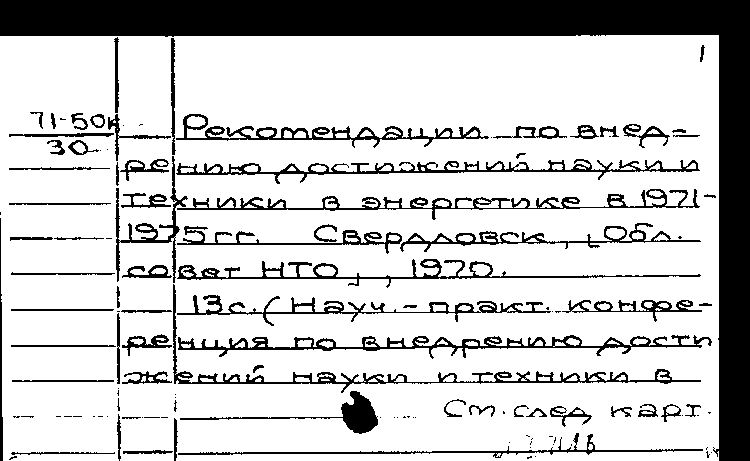 1
71-50к Рекомендации по внед-
30
рению достижений науки и
техники в энергетике в 1971-
1975 гг. Свердловск, [Обл.
совет НТО], 1970.
13с. (Науч.-практ. конфе-
ренция по внедрению дости
жений науки и техники в
См. след карт.